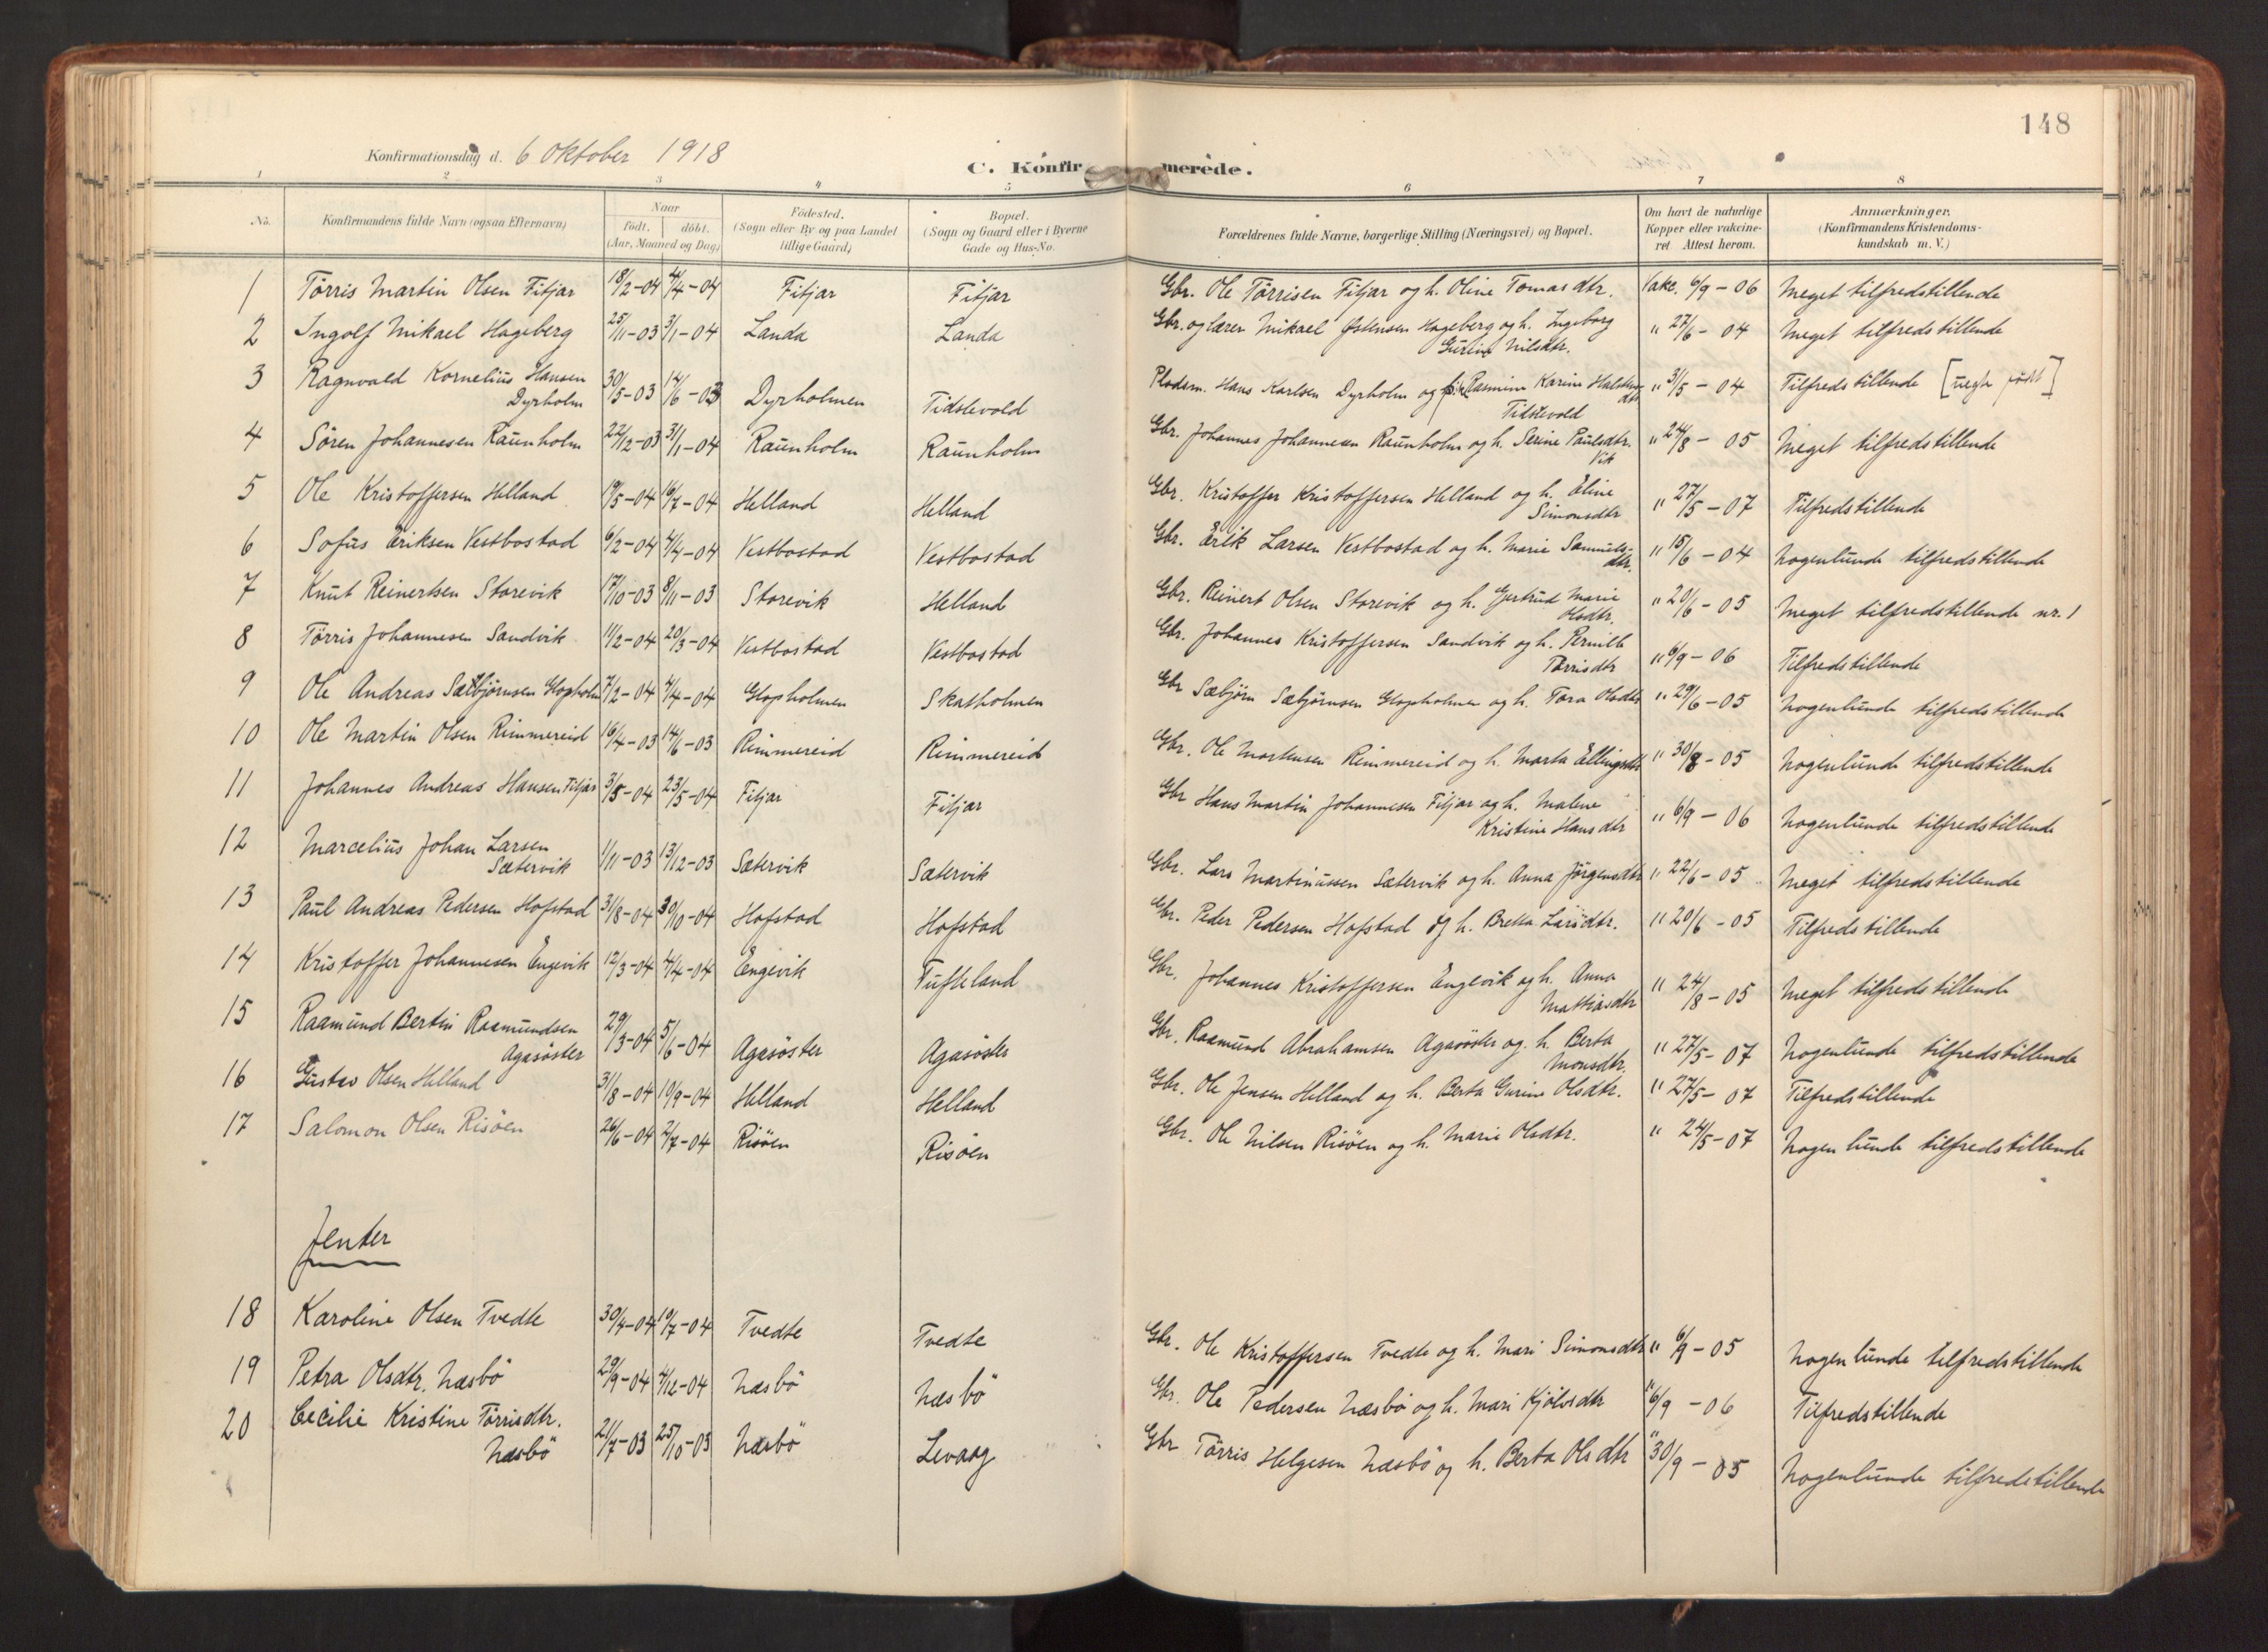 148
Konfirmationsdag d. 6 Oktober 1918
C. Konfirmerede.
1 2 3 4 5 6 7 8
No. Konfirmandens fulde Navn (ogsaa Efternavn) Naar født. døbt. (Aar, Maaned og Dag) Fødested. (Sogn eller By og paa Landet tillige Gaard) Bopæl. (Sogn og Gaard eller i Byerne Gade og Hus-No. Forældrenes fulde Navne, borgerlige Stilling (Næringsvei) og Bopæl. Om havt de naturlige Kopper eller vakcineret Attest herom. Anmærkninger. (Konfirmandens Kristendomskundskab m. V.)
1 Törris Martin Olsen Fitjar 18/2-04 4/4-04 Fitjar Fitjar Gbr. Ole Törrisen Fitjar og h. Oline Tomasdtr. Vakc. 6/9-06 Meget tilfredstillende
2 Ingolf Mikael Hageberg 25/11-03 3/1-04 Landa Landa Gbr. og lærer Mikael Østensen Hageberg og h. Ingeborg
Gurine Nilsdtr. " 27/6-04 Meget tilfredstillende
3 Ragnvald Kornelius Hansen
Dyrholm 30/5-03 14/6-03 Dyrholmen Tidslevold Pladsm. Hans Karlsen Dyrholm og Rasmine Karine
Tidslevold " 31/5-04 Tilfredstillende [uegte født]
4 Sören Johannesen Raunholm 22/12-03 31/1-04 Raunholm Raunholm Gbr. Johannes Johannesen Raunholm og h. Serine Paulsdtr.
Vik " 24/8-05 Meget tilfredstillende
5 Ole Kristoffersen Helland 19/5-04 16/7-04 Helland Helland Gbr. Kristoffer Kristoffersen Helland og h. Eline
Simonsdtr " 27/5-07 Tilfredstillende
6 Sofus Eriksen Vestbostad 6/2-04 4/4-04 Vestbostad Vestbostad Gbr. Erik Larsen Vestbostad og h. Marie Samuels-
dtr. " 15/6-04 Nogenlunde tilfredstillende
7 Knut Reinertsen Storevik 17/10-03 8/11-03 Storevik Helland Gbr. Reinert Olsen Storevik og h. Gertrud Marie
Olsdtr. " 20/6-05 Meget tilfredstillende nr. 1
8 Törris Johannesen Sandvik 11/2-04 20/3-04 Vestbostad Vestbostad Gbr. Johannes Kristoffersen Sandvik og h. Pernille
Törrisdtr " 6/9-06 Tilfredstillende
9 Ole Andreas Sæbjørnsen Glopholm 7/2-04 4/4-04 Glopholmen Skatholmen Gbr Sæbjörn Sæbjørnsen Glopholmen og h. Tora Olsdtr " 29/6-05 Nogenlunde tilfredstillende
10 Ole Martin Olsen Rimmereid 16/4-03 14/6-03 Rimmereid Rimmereid Gbr. Ole Mortensen Rimmereid og h. Marta Ellingsdtr " 30/8-05 Nogenlunde tilfredstillende
11 Johannes Andreas Hansen Fitjar 3/5-04 23/5-04 Fitjar Fitjar Gbr Hans Martin Johannesen Fitjar og h. Malene
Kristine Hansdtr " 6/9-06 Nogenlunde tilfredstillende
12 Marcelius Johan Larsen
Sætervik 1/11-03 13/12-03 Sætervik Sætervik Gbr. Lars Martinussen Sætervik og h. Anna Jörgensdtr " 22/6-05 Meget tilfredstillende
13 Paul Andreas Pedersen Hofstad 31/8-04 30/10-04 Hofstad Hofstad Gbr. Peder Pedersen Hofstad og h. Bretta Larsdtr. " 20/6-05 Tilfredstillende
14 Kristoffer Johannesen Engevik 12/3-04 4/4-04 Engevik Tufteland Gbr. Johannes Kristoffersen Engevik og h. Anna
Mattiasdtr " 24/8-05 Meget tilfredstillende
15 Raamund Bertin Raamundsen
Agasöster 29/3-04 5/6-04 Agasöster Agasöster Gbr. Raamund Abrahamsen Agasöster og h. Berta
Monsdtr. " 27/5-07 Nogenlunde tilfredstillende
16 Gustav Olsen Helland 31/8-04 10/9-04 Helland Helland Gbr. Ole Jensen Helland og h. Berta Gurine Olsdtr. " 27/5-07 Tilfredstillende
17 Salomon Olsen Risöen 26/6-04 2/7-04 Risöen Risöen Gbr. Ole Nilsen Risöen og h. Marie Olsdtr. " 24/5-07 Nogenlunde tilfredstillende
Jenter
18 Karoline Olsen Tvedte 30/4-04 10/7-04 Tvedte Tvedte Gbr. Ole Kristoffersen Tvedte og h. Mari Simonsdtr " 6/9-05 Nogenlunde tilfredstillende
19 Petra Olsdtr. Næsbö 29/9-04 4/12-04 Næsbö Næsbö Gbr. Ole Pedersen Næsbö og h. Mari Kjölvsdtr " 6/9-06 Tilfredstillende
20 Cecilie Kristine Törrisdtr.
Næsbö 21/7-03 25/10-03 Næsbö Levaag Gbr Törris Helgesen Næsbö og h. Berta Olsdtr " 30/9-05 Nogenlunde tilfredstillende